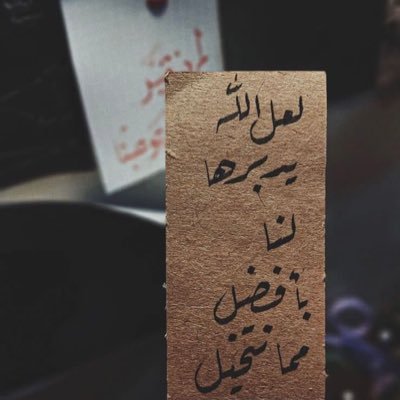 لعل الله
يدبرها
لنا
بأفضل
مما نتخيل